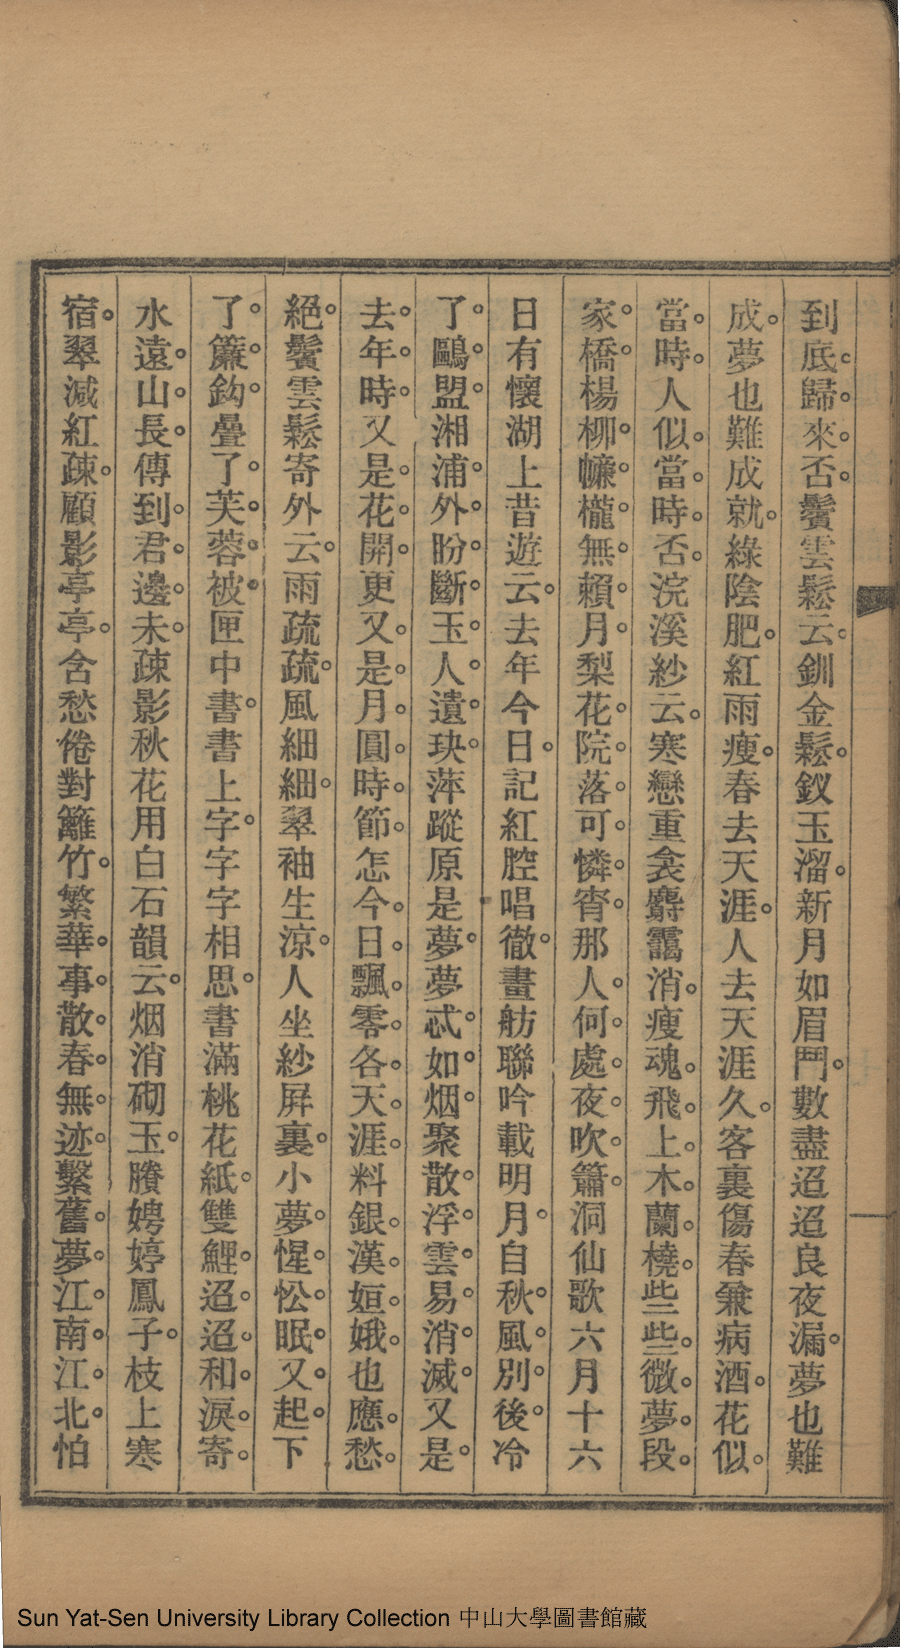 到底歸來否鬢雲鬆云釧金鬆釵玉溜新月如眉鬥數盡迢迢良夜漏夢也難
成夢也難成就綠陰肥紅雨瘦春去天涯人去天涯久客裏傷春兼病酒花似
當時人似當時否浣溪紗云寒戀重衾麝靄消瘦魂飛上木蘭橈些些微夢段
家橋楊柳㡘櫳無賴月梨花院落可憐宵那人何處夜吹簫洞仙歌六月十六
日有懷湖上昔遊云去年今日記紅腔唱徹畫舫聯吟載明月自秋風別後冷
了鷗盟湘浦外盼斷玉人遺玦萍蹤原是夢夢忒如烟聚散浮雲易消滅又是
去年時又是花開更又是月圓時節怎今日飄零各天涯料銀漢姮娥也應愁
絕鬢雲鬆寄外云雨疏疏風細細翠袖生涼人坐紗屛裏小夢惺忪眠又起下
了簾鈎疊了芙蓉被匣中書書上字字字相思書滿桃花紙雙鯉迢迢和淚寄
水遠山長傳到君邊未疎影秋花用白石韻云烟消砌玉賸娉婷鳳子枝上寒
宿翠減紅疎顧影亭亭含愁倦對籬竹繁華事散春無迹繫舊夢江南江北怕
Sun Yat-Sen University Library Collection 中山大學圖書館藏